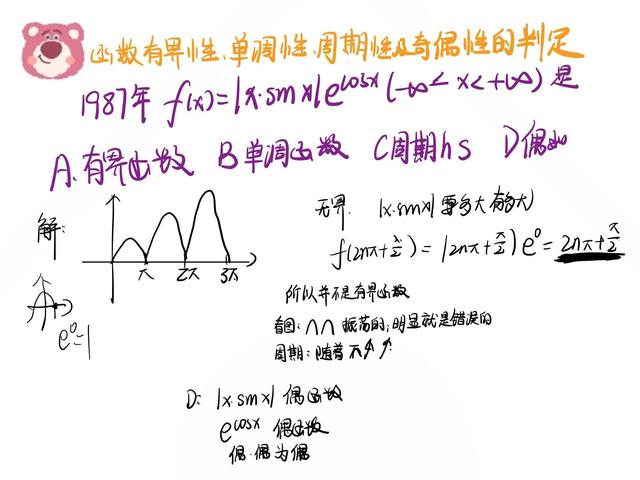 函数有界性、单调性、周期性及奇偶性的判定
1987年 f(x)=|x·sinx|e^cosx (-∞<x<+∞) 是
A.有界函数 B单调函数 C周期hs D偶函数
解:
π 2π 3π
e^0=1
无界. |x·sinx| 要多大有多大)
f(2nπ+π/2)=|2nπ+π/2|e^0=2nπ+π/2
所以并不是有界函数
看图:∩∩ 振荡的,明显就是错误的
周期:随着 x↑↑
D: |x·sinx| 偶函数
e^cosx 偶函数
偶·偶为偶